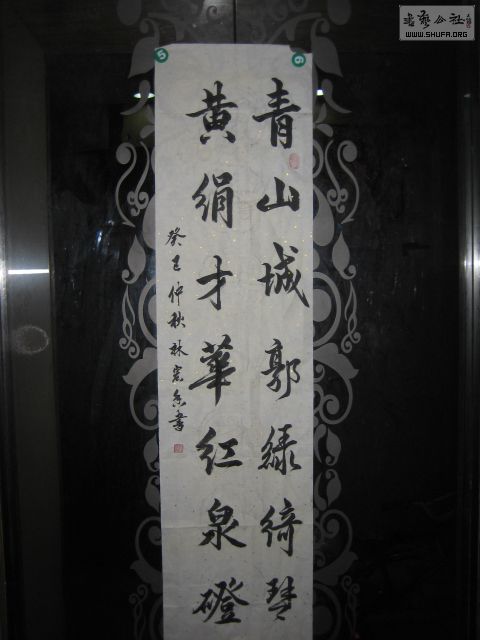 青山城郭綠綺琴
黄絹才華紅泉磴
癸巳仲秋林宏書
書藝公社
WWW.SHUFA.ORG
5
6